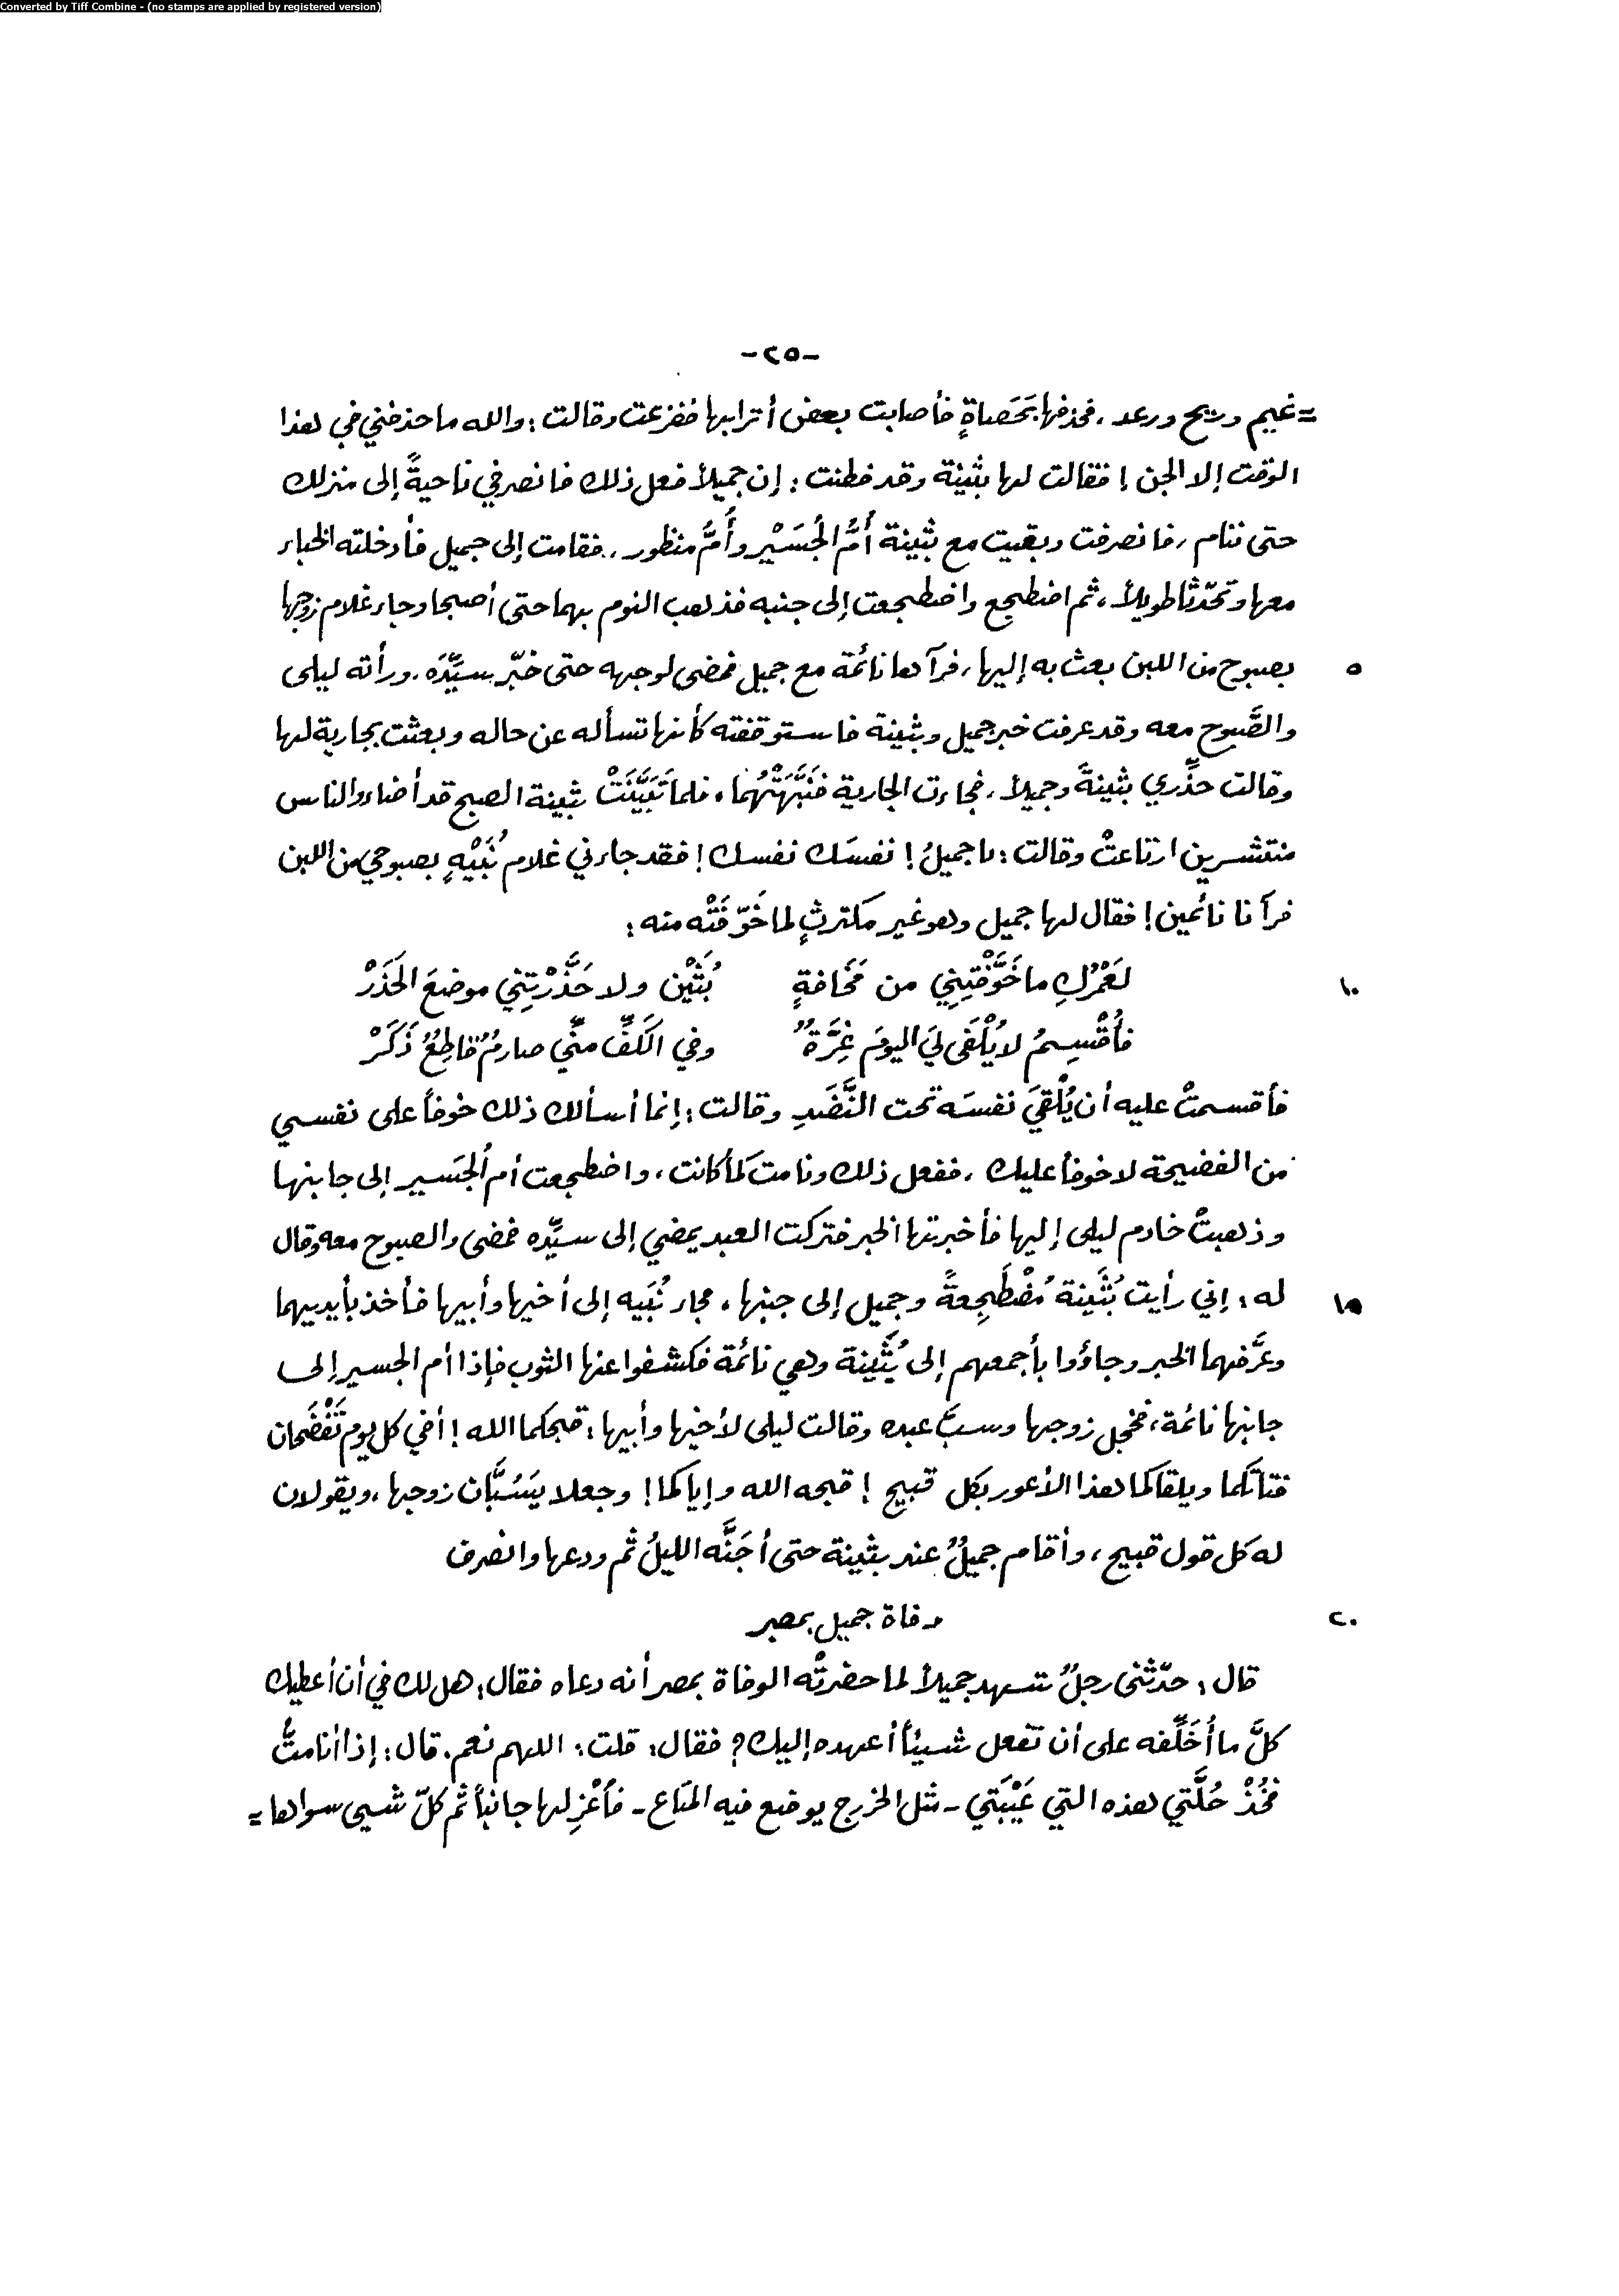 Converted by Tiff Combine - (no stamps are applied by registered version)
-٢٥-
= غيم وريح ورعد، فحذفها بَحَصاةٍ فأصابت بعض أترابها ففزعت وقالت: والله ما حذفني في هذا
الوقت إلا الجن! فقالت لها بثينة وقد فطنت: إن جميلاً فعل ذلك فانصرفي ناحيةً إلى منزلك
حتى ننام، فانصرفت وبقيت مع بثينة أُمُّ الجُسَيْر وأُمُّ منظور، فقامت إلى جميل فأدخلته الخباء
معها وتحدّثا طويلاً، ثم اضطجع واضطجعت إلى جنبه فذهب النوم بهما حتى أصبحا وجاء غلام زوجها
٥ بصبوح من اللبن بعث به إليها، فرآها نائمة مع جميل فمضى لوجهه حتى خبّر سيِّدَه، ورأته ليلى
والصَّبوح معه وقد عرفت خبر جميل وبثينة فاستوقفته كأنها تسأله عن حاله وبعثت بجارية لها
وقالت حذِّري بثينةَ وجميلاً، فجاءت الجارية فنَبَّهَتْهُما، فلما تَبَيَّنَتْ بثينة الصبح قد أضاء والناس
منتشرين ارتاعتْ وقالت: يا جميلُ! نفسَك نفسك! فقد جاءني غلام نُبَيْهٍ بصبوحي من اللبن
فرآنا نائمين! فقال لها جميل وهو غير مكترثٍ لما خَوّفَتْه منه:
١٠ لَعَمْرُكِ ما خَوَّفْتِنِي من مَخَافةٍ بُثَيْن ولا حَذَّرْتِنِي موضعَ الحَذَرْ
فأُقْسِمُ لا يُلْفَى لِيَ اليومَ غِرَّةٌ وفي الكَفِّ منِّي صارمٌ قاطِعٌ ذَكَرْ
فأقسمتْ عليه أن يُلْقِيَ نفسَه تحت النَّضَدِ وقالت: إنما أسألك ذلك خوفاً على نفسي
من الفضيحة لا خوفاً عليك، ففعل ذلك ونامت كما كانت، واضطجعت أم الجُسَير إلى جانبها
وذهبتْ خادم ليلى إليها فأخبرتها الخبر فتركت العبد يمضي إلى سيِّده فمضى والصبوح معه وقال
١٥ له: إني رأيت بُثَينة مُضْطَجِعةً وجميل إلى جنبها، فجاء نُبَيه إلى أخيها وأبيها فأخذ بأيديهما
وعَرَّفهما الخبر وجاؤوا بأجمعهم إلى بُثَينة وهي نائمة فكشفوا عنها الثوب فإذا أم الجسير إلى
جانبها نائمة، فخجل زوجها وسبَّ عبده وقالت ليلى لأخيها وأبيها: قبحكما الله! أفي كل يوم تَفْضَحان
فتاتكما ويلقاكما هذا الأعور بكل قبيح! قبحه الله وإياكما! وجعلا يَسُبَّان زوجها، ويقولان
له كل قول قبيح، وأقام جميلٌ عند بثينة حتى أجَنَّه الليلُ ثم ودعها وانصرف
٢٠ وفاة جميل بمصر
قال: حدّثني رجلٌ شهد جميلاً لما حضرتْه الوفاة بمصر أنه دعاه فقال: هل لك في أن أعطيك
كلَّ ما أُخَلِّفه على أن تفعل شيئاً أعهده إليك؟ فقال: قلت: اللهم نعم. قال: إذا أنا متُّ
فخُذْ حُلَّتي هذه التي عَيْبَتي - مثل الخرج يوضع فيه المتاع - فأعْزِلها جانباً ثم كلّ شيى سواها =